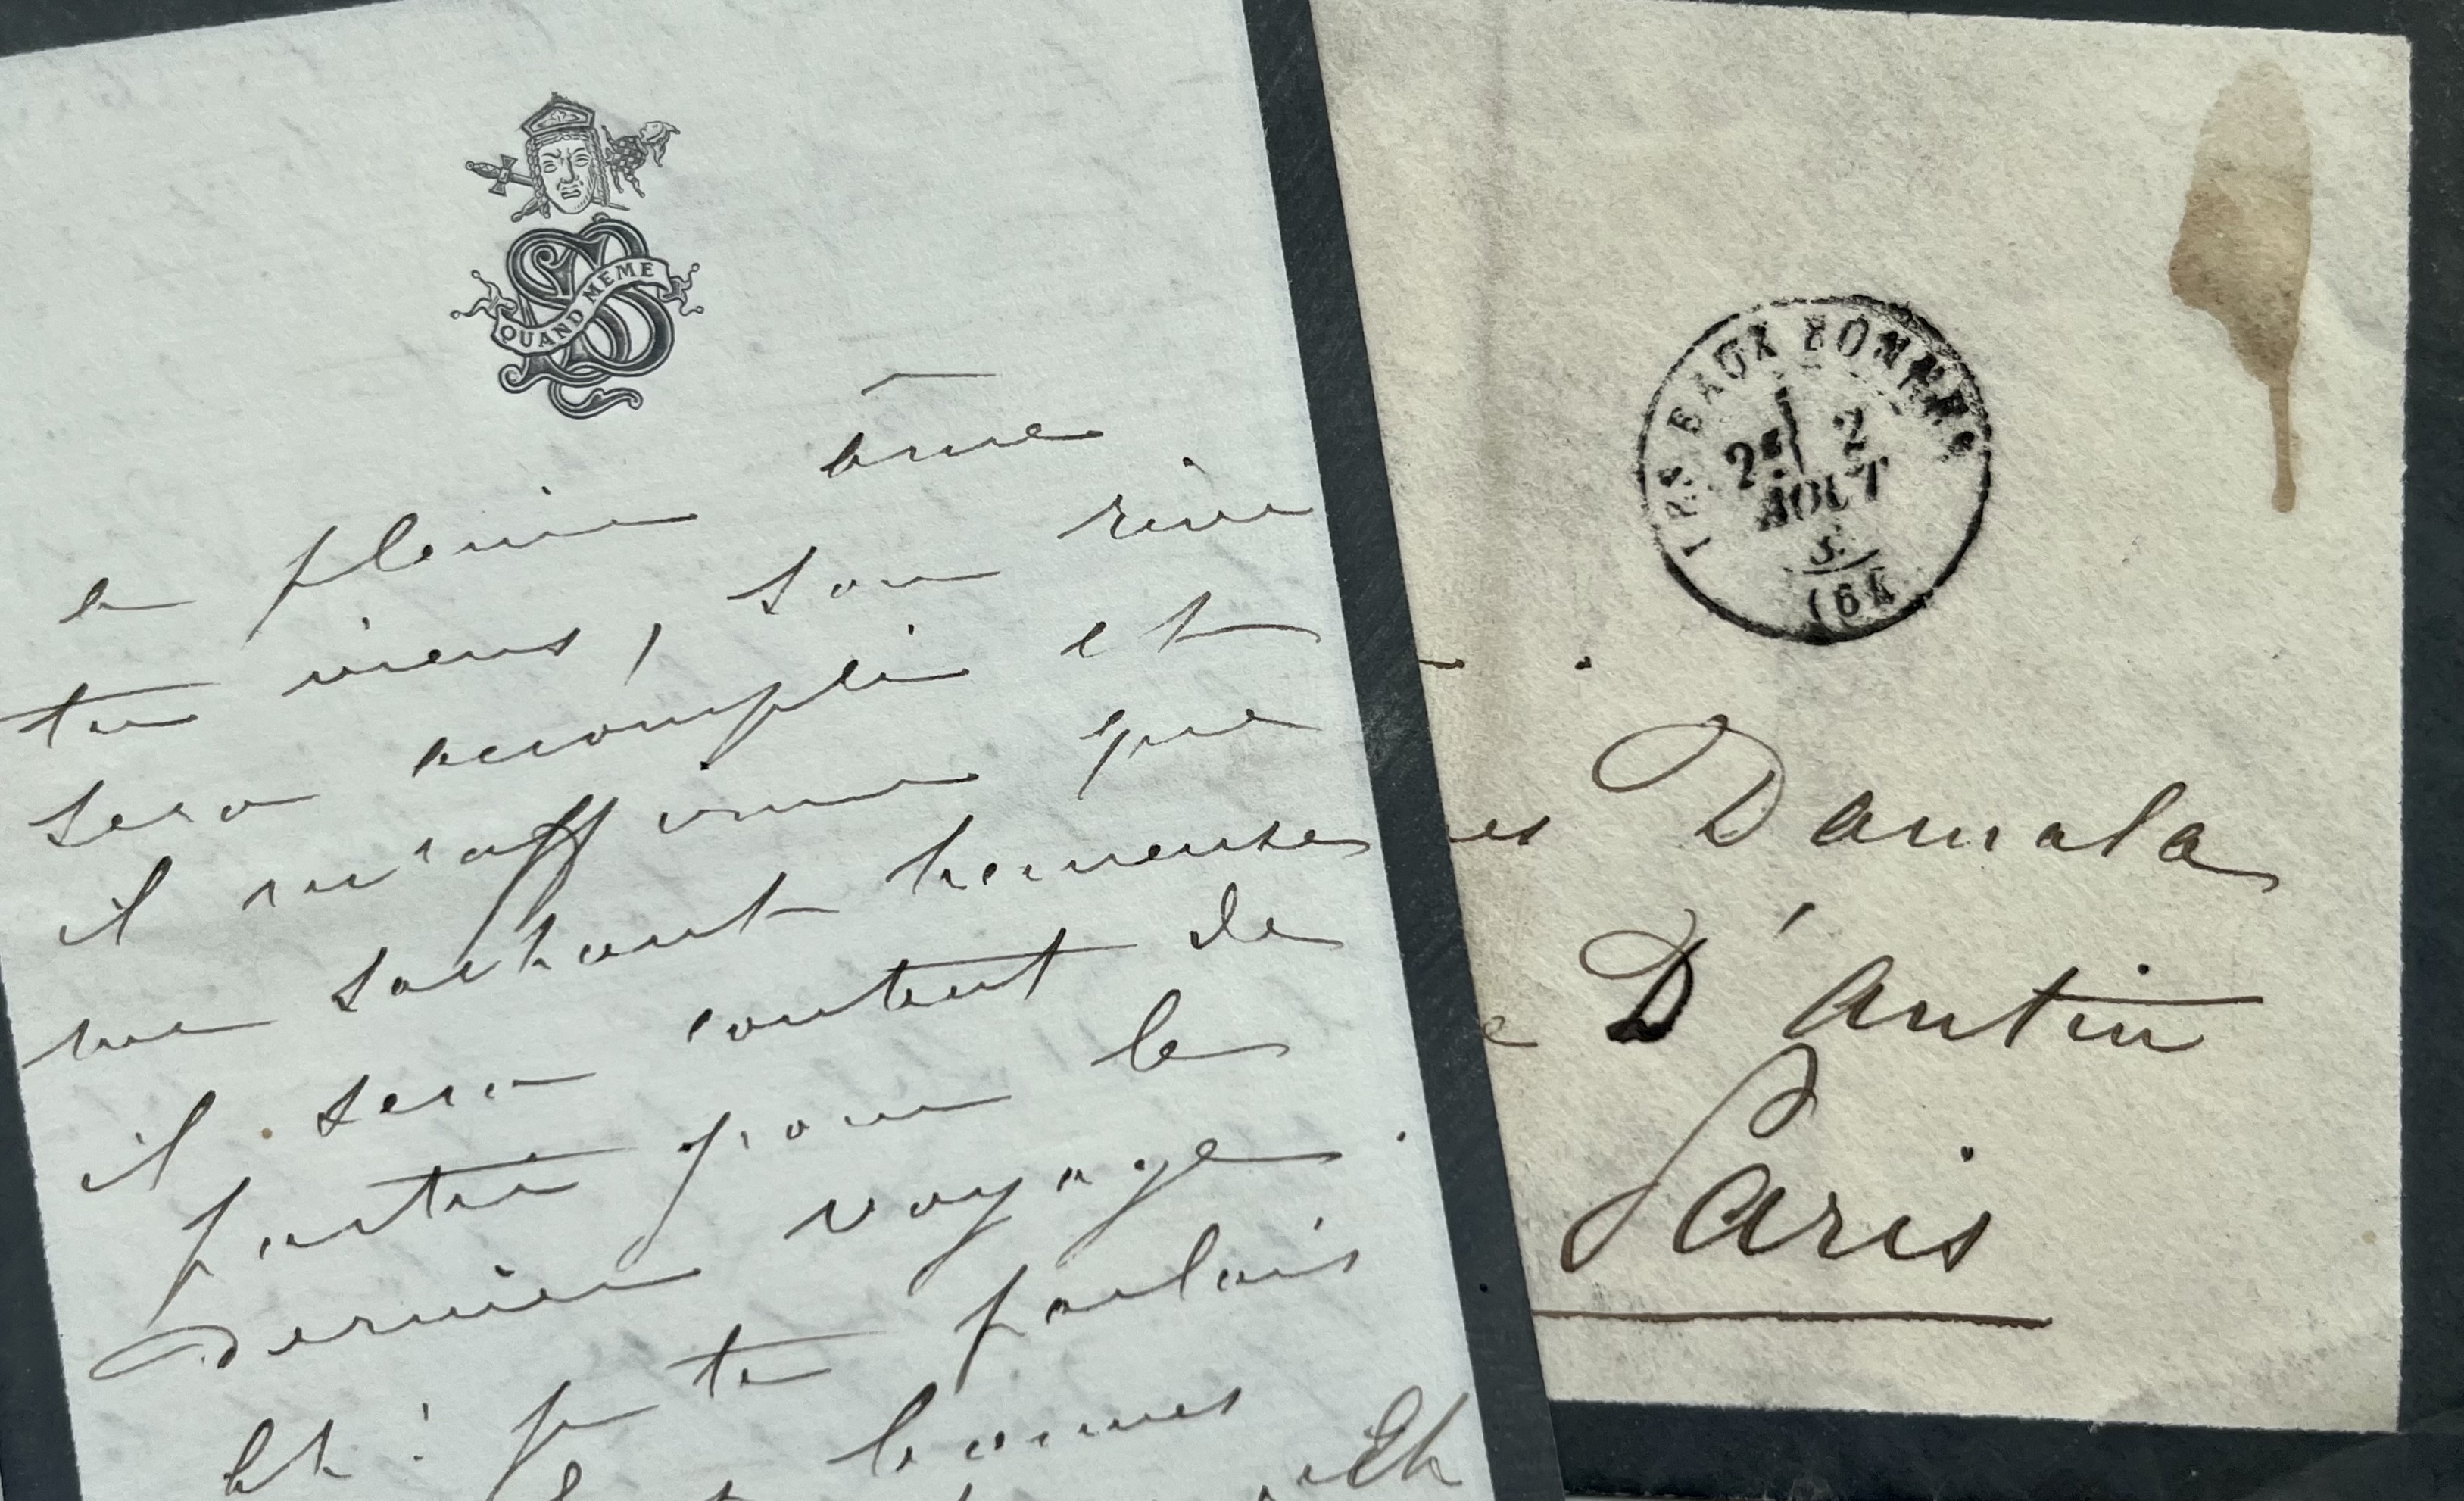 QUAND MEME
âme
a pleine
tu viens, son rêve
sera accompli et
il m'affirme que
me sachant heureuse
il sera content de
partir pour le
dernier voyage.
Ah! je te parlais
larmes
Eh
EAUX BONNES
2E 2
AOUT
(64)
es Damala
e D'Antin
Paris